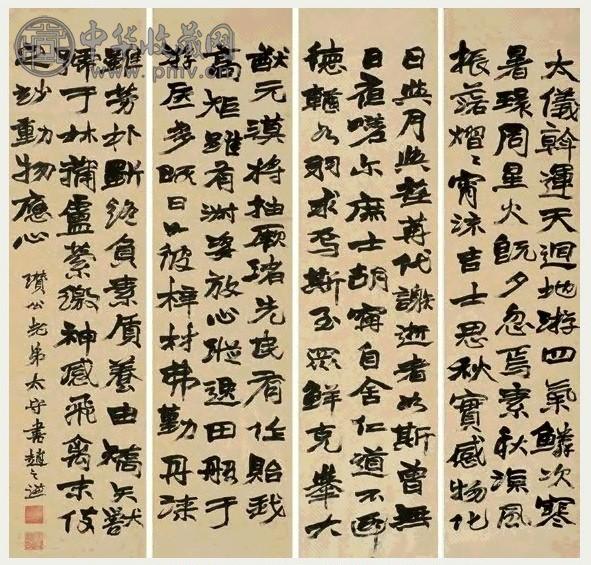 太儀斡運天迴地游四氣鱗次寒
暑環周星火既夕忽焉素秋涼風
振落熠〻宵流吉士思秋實感物化
日與月與荏苒代謝逝者如斯曾無
日夜嗟尔庶士胡寧自舍仁道不遐
德輶如羽求焉斯至眾鮮克舉大
猷元漠將抽厥緒先民有作貽我
高矩雖有淑姿放心縱逸田般于
游居多暇日如彼梓材弗勤丹漆
雖勞朴斲終負素質養由矯矢獸
號于林蒲盧縈繳神感飛禽末伎
之妙動物應心
公弟太守書趙之謙
中华收藏网